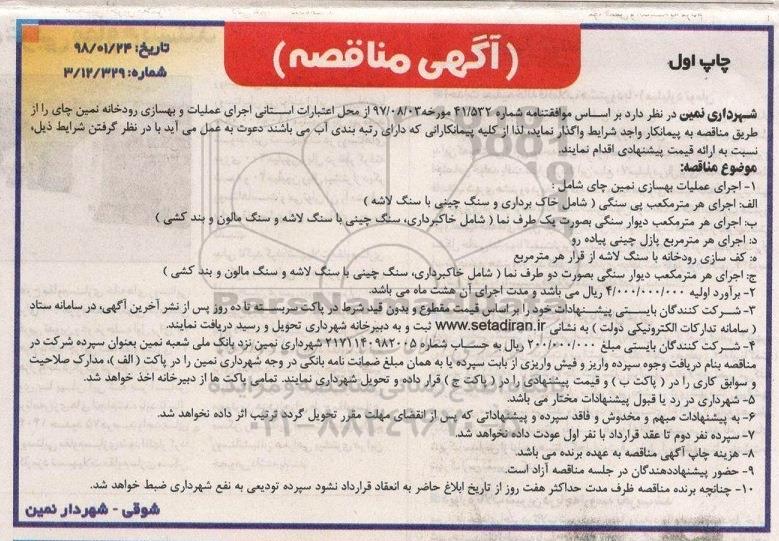 (آگهی مناقصه)
تاریخ: ۹۸/۰۱/۲۴
شماره: ۳/۱۲/۳۲۹
چاپ اول
شهرداری نمین در نظر دارد بر اساس موافقتنامه شماره ۴۱/۵۳۲ مورخه ۹۷/۰۸/۰۳ از محل اعتبارات استانی اجرای عملیات و بهسازی رودخانه نمین چای را از
طریق مناقصه به پیمانکار واجد شرایط واگذار نماید، لذا از کلیه پیمانکارانی که دارای رتبه بندی آب می باشند دعوت به عمل می آید با در نظر گرفتن شرایط ذیل،
نسبت به ارائه قیمت پیشنهادی اقدام نمایند.
موضوع مناقصه:
۱- اجرای عملیات بهسازی نمین چای شامل :
الف: اجرای هر مترمکعب پی سنگی ( شامل خاک برداری و سنگ چینی با سنگ لاشه )
ب: اجرای هر مترمکعب دیوار سنگی بصورت یک طرف نما ( شامل خاکبرداری، سنگ چینی با سنگ لاشه و سنگ مالون و بند کشی )
د: اجرای هر مترمربع پازل چینی پیاده رو
ه: کف سازی رودخانه با سنگ لاشه از قرار هر مترمربع
ج: اجرای هر مترمکعب دیوار سنگی بصورت دو طرف نما ( شامل خاکبرداری، سنگ چینی با سنگ لاشه و سنگ مالون و بند کشی )
۲- برآورد اولیه ۴/۰۰۰/۰۰۰/۰۰۰ ریال می باشد و مدت اجرای آن هشت ماه می باشد.
۳- شرکت کنندگان بایستی پیشنهادات خود را بر اساس قیمت مقطوع و بدون قید شرط در پاکت سربسته تا ده روز پس از نشر آخرین آگهی، در سامانه ستاد
( سامانه تدارکات الکترونیکی دولت ) به نشانی www.setadiran.ir ثبت و به دبیرخانه شهرداری تحویل و رسید دریافت نمایند.
۴- شرکت کنندگان بایستی مبلغ ۲۰۰/۰۰۰/۰۰۰ ریال به حساب شماره ۲۱۷۱۱۴۰۹۸۲۰۰۵ شهرداری نمین نزد بانک ملی شعبه نمین بعنوان سپرده شرکت در
مناقصه بنام دریافت وجوه سپرده واریز و فیش واریزی از بابت سپرده یا به همان مبلغ ضمانت نامه بانکی در وجه شهرداری نمین را در پاکت ( الف )، مدارک صلاحیت
و سوابق کاری را در ( پاکت ب ) و قیمت پیشنهادی را در ( پاکت ج ) قرار داده و تحویل شهرداری نمایند. تمامی پاکت ها از دبیرخانه اخذ خواهد شد.
۵- شهرداری در رد یا قبول پیشنهادات مختار می باشد.
۶- به پیشنهادات مبهم و مخدوش و فاقد سپرده و پیشنهاداتی که پس از انقضای مهلت مقرر تحویل گردد ترتیب اثر داده نخواهد شد.
۷- سپرده نفر دوم تا عقد قرارداد با نفر اول عودت داده نخواهد شد.
۸- هزینه چاپ آگهی مناقصه به عهده برنده می باشد.
۹- حضور پیشنهاددهندگان در جلسه مناقصه آزاد است.
۱۰- چنانچه برنده مناقصه ظرف مدت حداکثر هفت روز از تاریخ ابلاغ حاضر به انعقاد قرارداد نشود سپرده تودیعی به نفع شهرداری ضبط خواهد شد.
شوقی - شهردار نمین
ParsNamadData
۰۲۱-۸۸۳۴۹۶۷۰